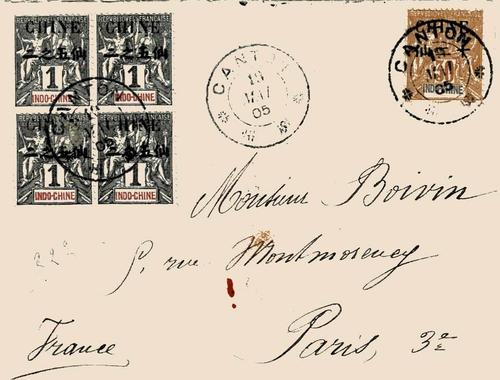 REPUBLIQUE FRANCAISE
REPUBLIQUE FRANCAISE
CHINE
CHINE
1
1
INDO-CHINE
INDO-CHINE
REPUBLIQUE FRANCAISE
REPUBLIQUE FRANCAISE
CHINE
CHINE
1
1
INDO-CHINE
INDO-CHINE
CANTON
MAI
05
CANTON
05
INDO-CHINE
Monsieur Boivin
rue Montmorency
Paris, 3e
France